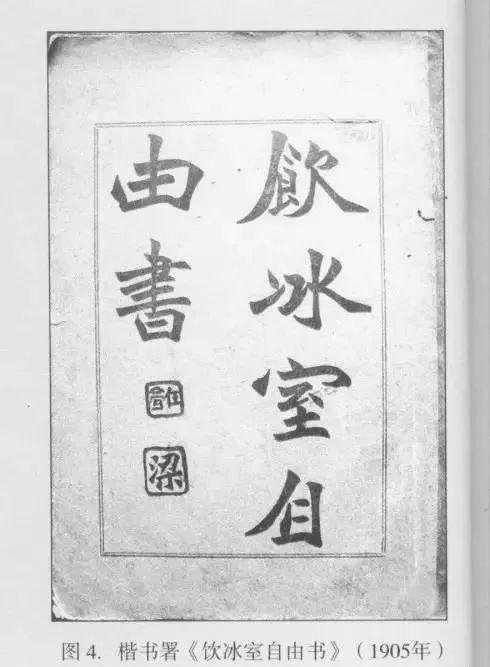 飲冰室自
由書
梁
图 4. 楷书署《饮冰室自由书》（1905年）